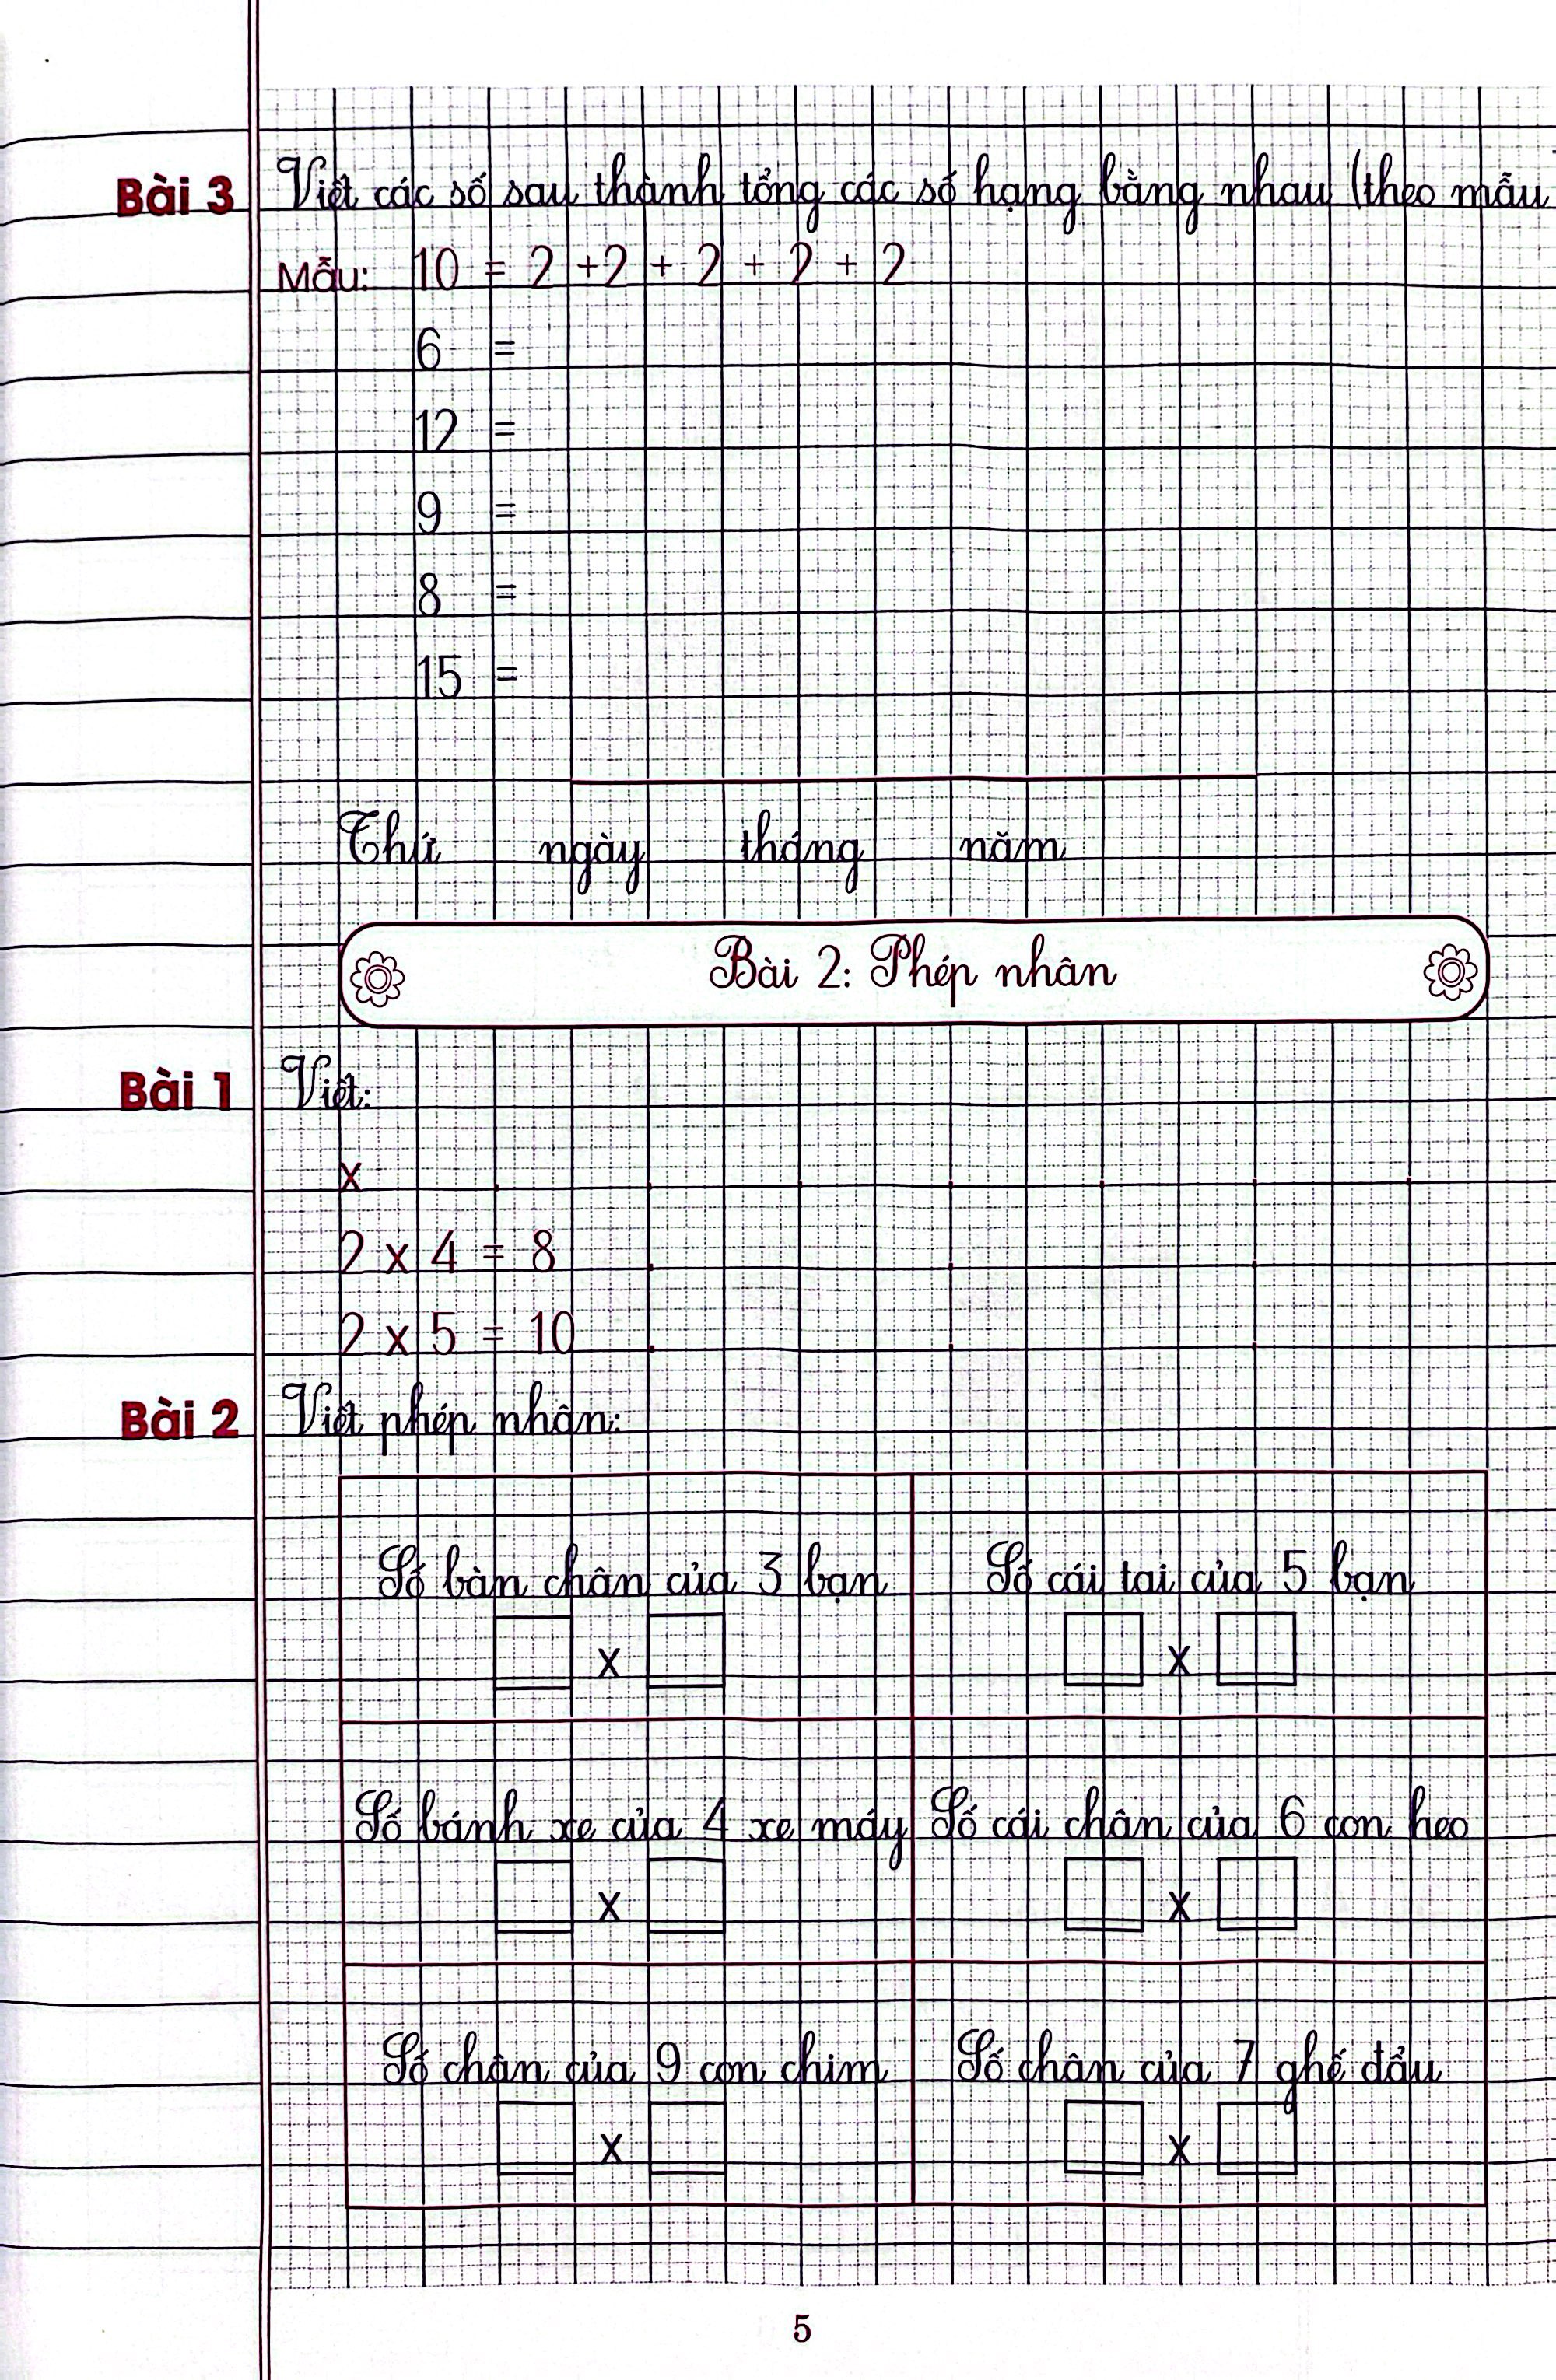 Bài 3 Viết các số sau thành tổng các số hạng bằng nhau (theo mẫu
Mẫu: 10 = 2 + 2 + 2 + 2 + 2
6 =
12 =
9 =
8 =
15 =
Thứ ngày tháng năm
Bài 2: Phép nhân
Bài 1 Viết:
x
2 x 4 = 8
2 x 5 = 10
Bài 2 Viết phép nhân:
Số bàn chân của 3 bạn
x
Số cái tai của 5 bạn
x
Số bánh xe của 4 xe máy
x
Số cái chân của 6 con heo
x
Số chân của 9 con chim
x
Số chân của 7 ghế đẩu
x
5